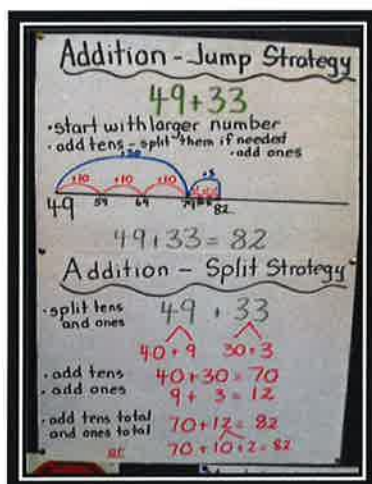 Addition - Jump Strategy
49+33
• start with larger number
• add tens - split them if needed
• add ones
+30
+3
+10 +10 +10
49 59 69 79 82
49+33 = 82
Addition - Split Strategy
• split tens and ones
49 + 33
40 + 9 30 + 3
• add tens 40+30 = 70
• add ones 9 + 3 = 12
• add tens total and ones total
70+12 = 82
70 + 10 + 2 = 82